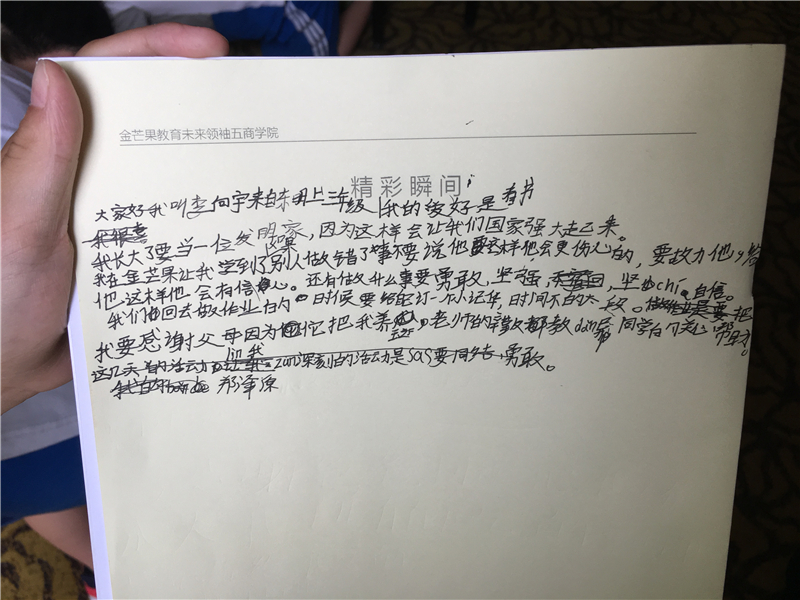 金芒果教育未来领袖五商学院
精彩瞬间
大家好我叫李向宇来自东明上三年级我的爱好是看书
我很喜
我长大了要当一位发明家,因为这样会让我们国家强大走起来。
我在金芒果让我学到了如果别人做错了事不要说他这样他会更伤心的,要鼓力他,给
他,这样他会有信心。还有做什么事要勇敢,坚强,坚chi,自信。
我们回去做作业的时候要给自己订一个小记华,时间不的大
我要感谢父母因为他们把我养,老师的教dao同学的关心帮
这几天的活动深刻的活动是SOS要勇敢。
郑泽原